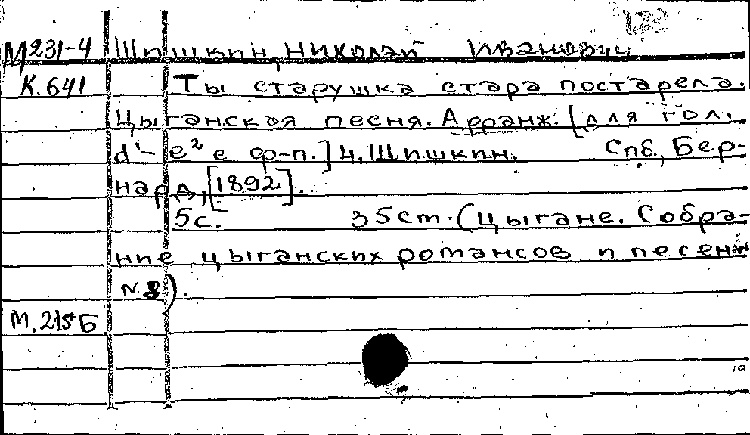 М231-4 Шишкин, Николай Иванович
К.641 Ты старушка стара постарела.
Цыганская песня. Арранж. [для гол.
d'- e² с ф-п.] Н. Шишкин. Спб., Бер-
нард, [1892].
5с. 35cm. (Цыгане. Собра-
ние цыганских романсов и песен
N 8).
М. 215Б